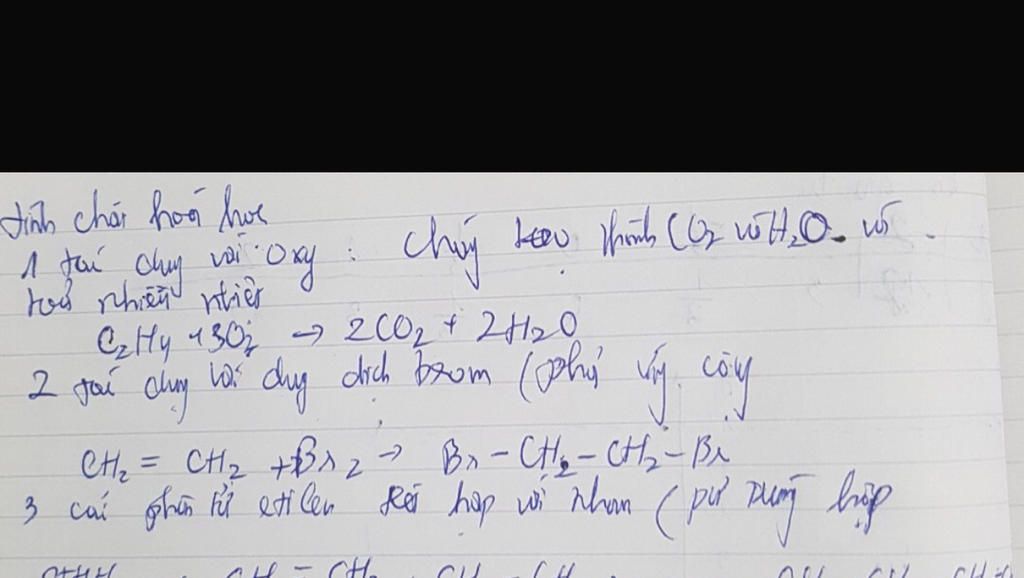 tính chất hoá học
1 tác dụng với Oxy : cháy tạo thành CO2 và H2O. và
toả nhiều nhiệt
C2H4 + 3O2 → 2CO2 + 2H2O
2 tác dụng với dung dịch brom (phản ứng cộng
CH2 = CH2 + Br2 → Br - CH2 - CH2 - Br
3 các phân tử etilen kết hợp với nhau (pư trùng hợp